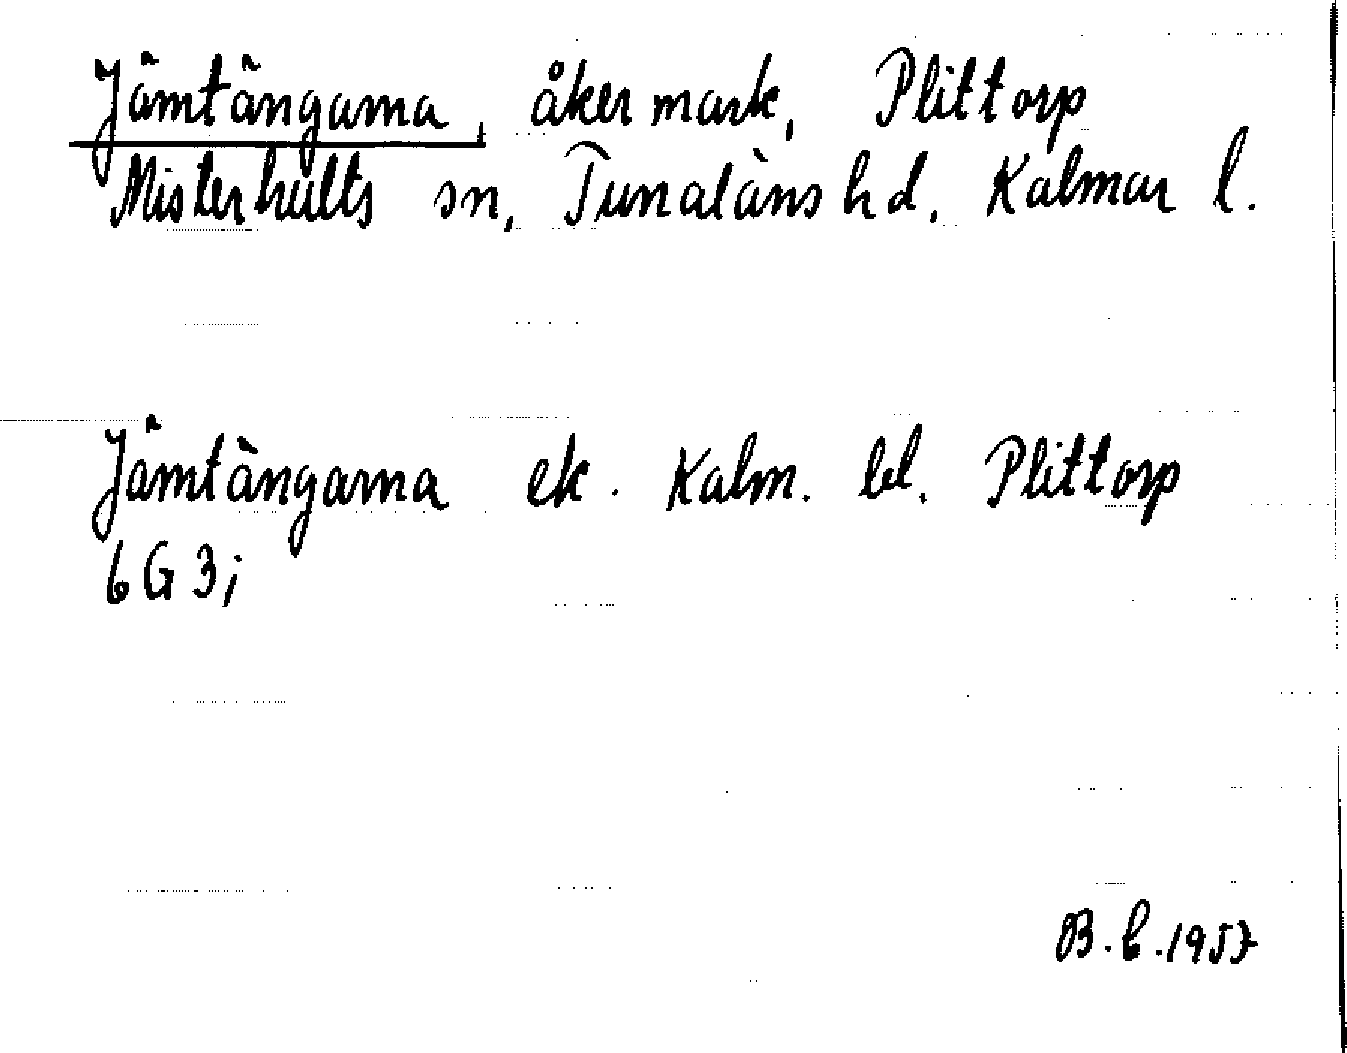 Jämtängarna, åkermark, Plittorp
Misterhults sn, Tunaläns hd, Kalmar l.
Jämtängarna ek. Kalm. bl. Plittorp
6 G 3 j
B.C. 1957